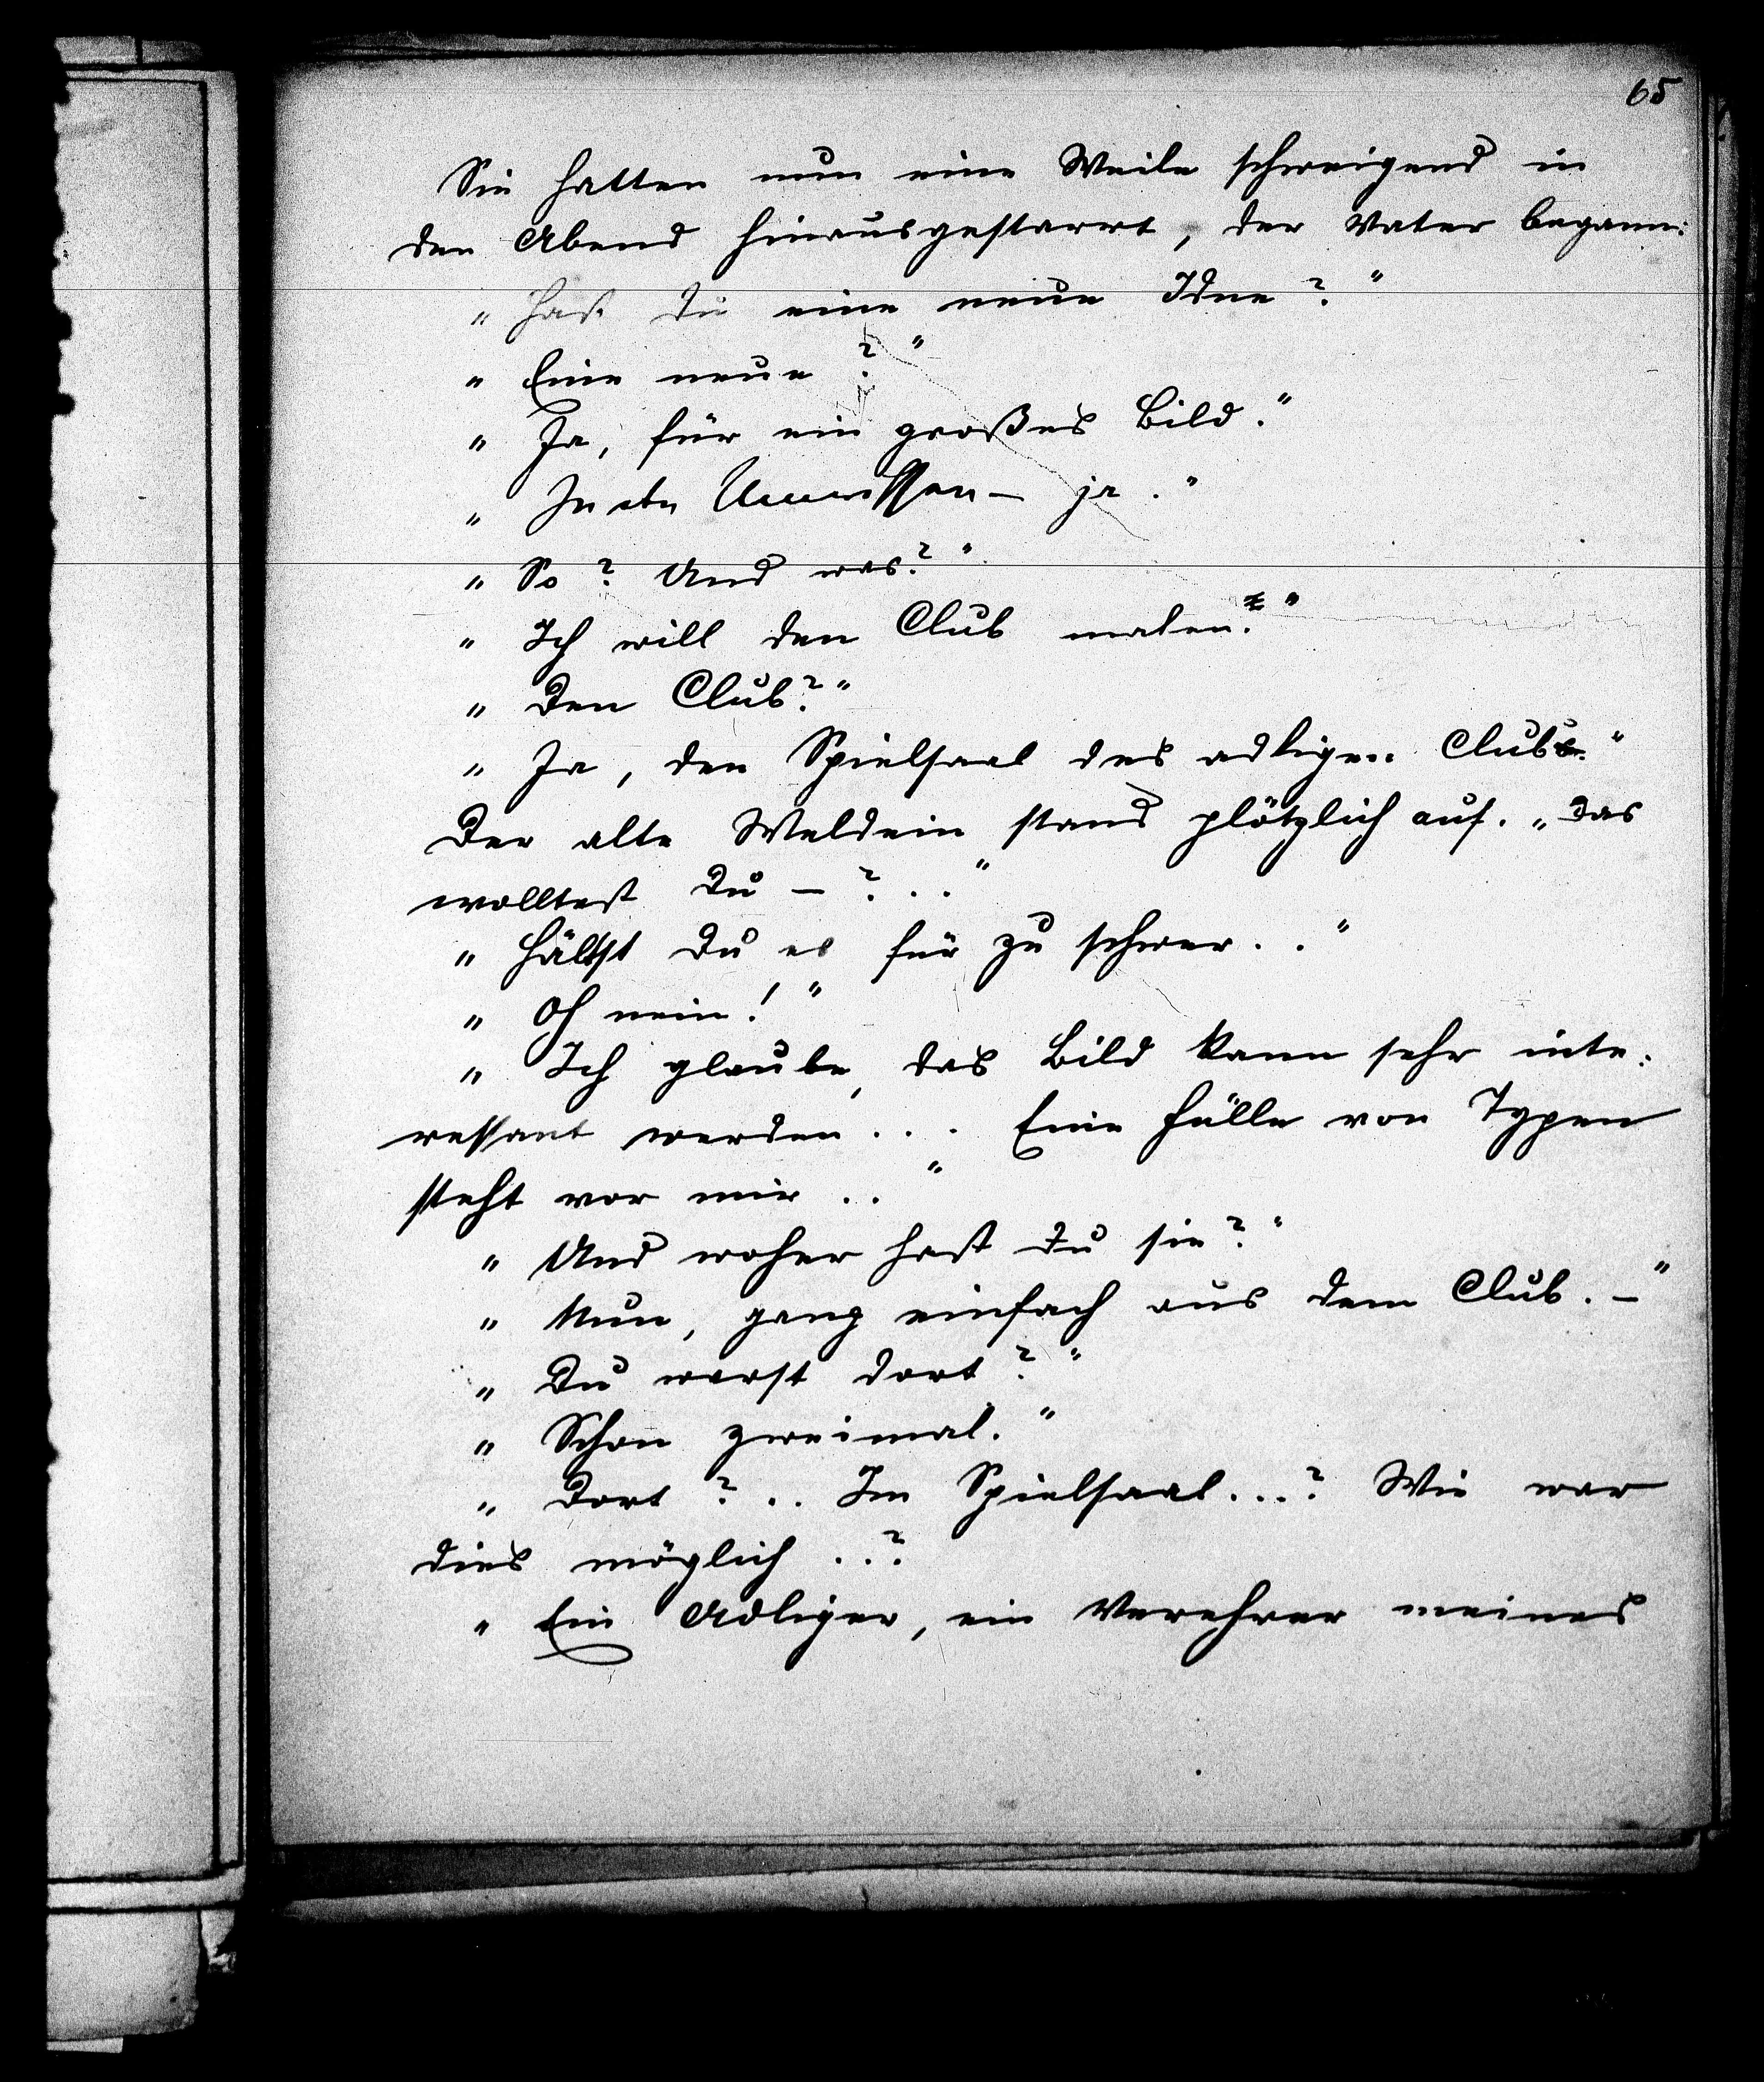 65
Sie hatten nun eine Weile schweigend in
den Abend hinausgestarrt, der Vater begann:
„Hast Du eine neue Idee?“
„Eine neue?“
„Ja, für ein großes Bild.“
„In den Umrissen – ja.“
„So? Und was?“
„Ich will den Club malen.“
„Den Club?“
„Ja, den Spielsaal des adligen Clubs.“
Der alte Weldein stand plötzlich auf. „Das
wolltest Du – ?..“
„Hältst Du es für zu schwer..“
„Oh nein!“
„Ich glaube, das Bild kann sehr inte:
ressant werden... Eine Fülle von Typen
steht vor mir..“
„Und woher hast Du sie?“
„Nun, ganz einfach aus dem Club. –“
„Du warst dort?“
„Schon zweimal.“
„Dort?.. Im Spielsaal...? Wie war
dies möglich..?
„Ein Adliger, ein Verehrer meines